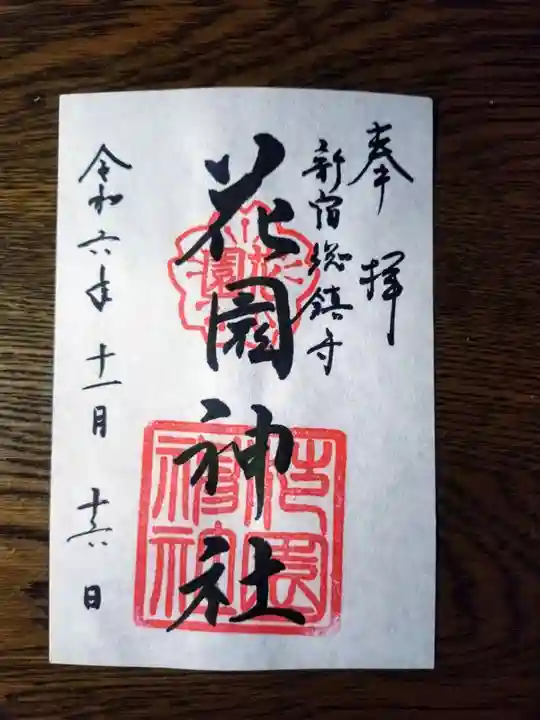 奉拝
新宿総鎮守
花園神社
令和六年十一月十六日
花園
花園神社